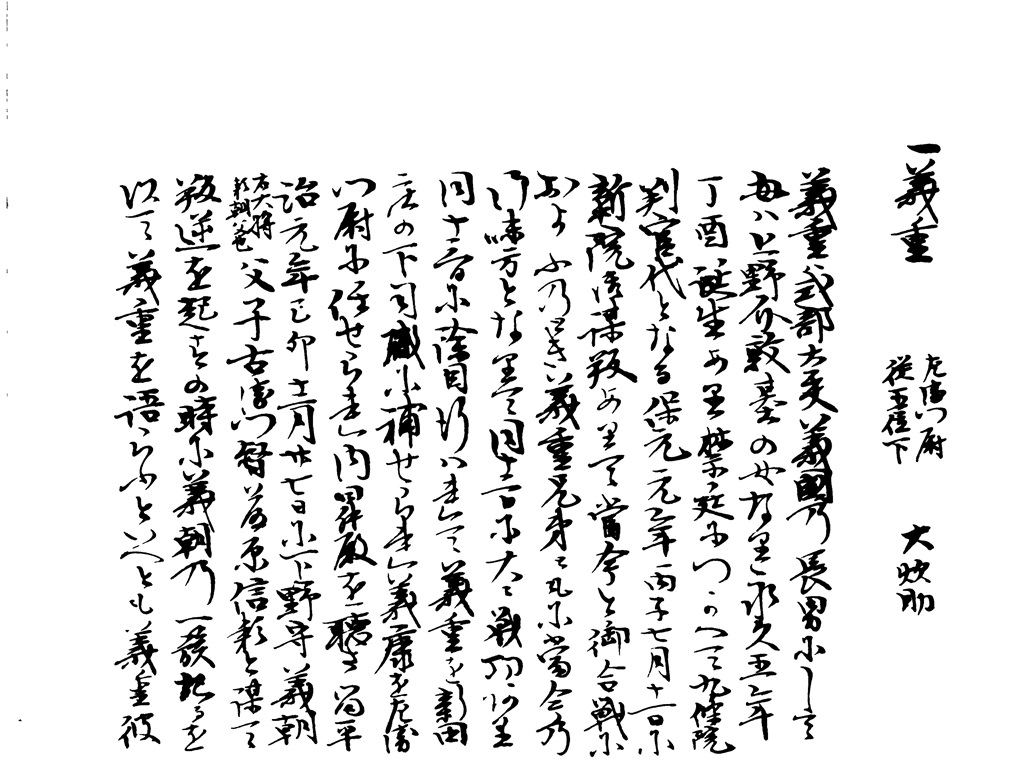 一義重 左衛門尉 従五位下 大炊助
義重ハ式部大夫義國乃長男にして
母ハ上野介敦基の女なり永久五年
丁酉誕生あり禁廷につかへて九條院
判官代となる保元元年丙子七月十一日に
新院御謀叛ありて當今と御合戦に
およふ乃とき義重兄弟ともに當今乃
御味方となりて同十一日に大に戦功あり
同十三日に除目行ハれて義重を新田
庄の下司職に補せられ義康を左衛
門尉に任せられ内昇殿を聴さる平
治元年己卯十二月廿七日に下野守義朝
右大将頼朝父 父子右衛門督藤原信頼と謀て
叛逆を起す其の時に義朝乃一族記るを
以て義重を語らふといへとも義重彼